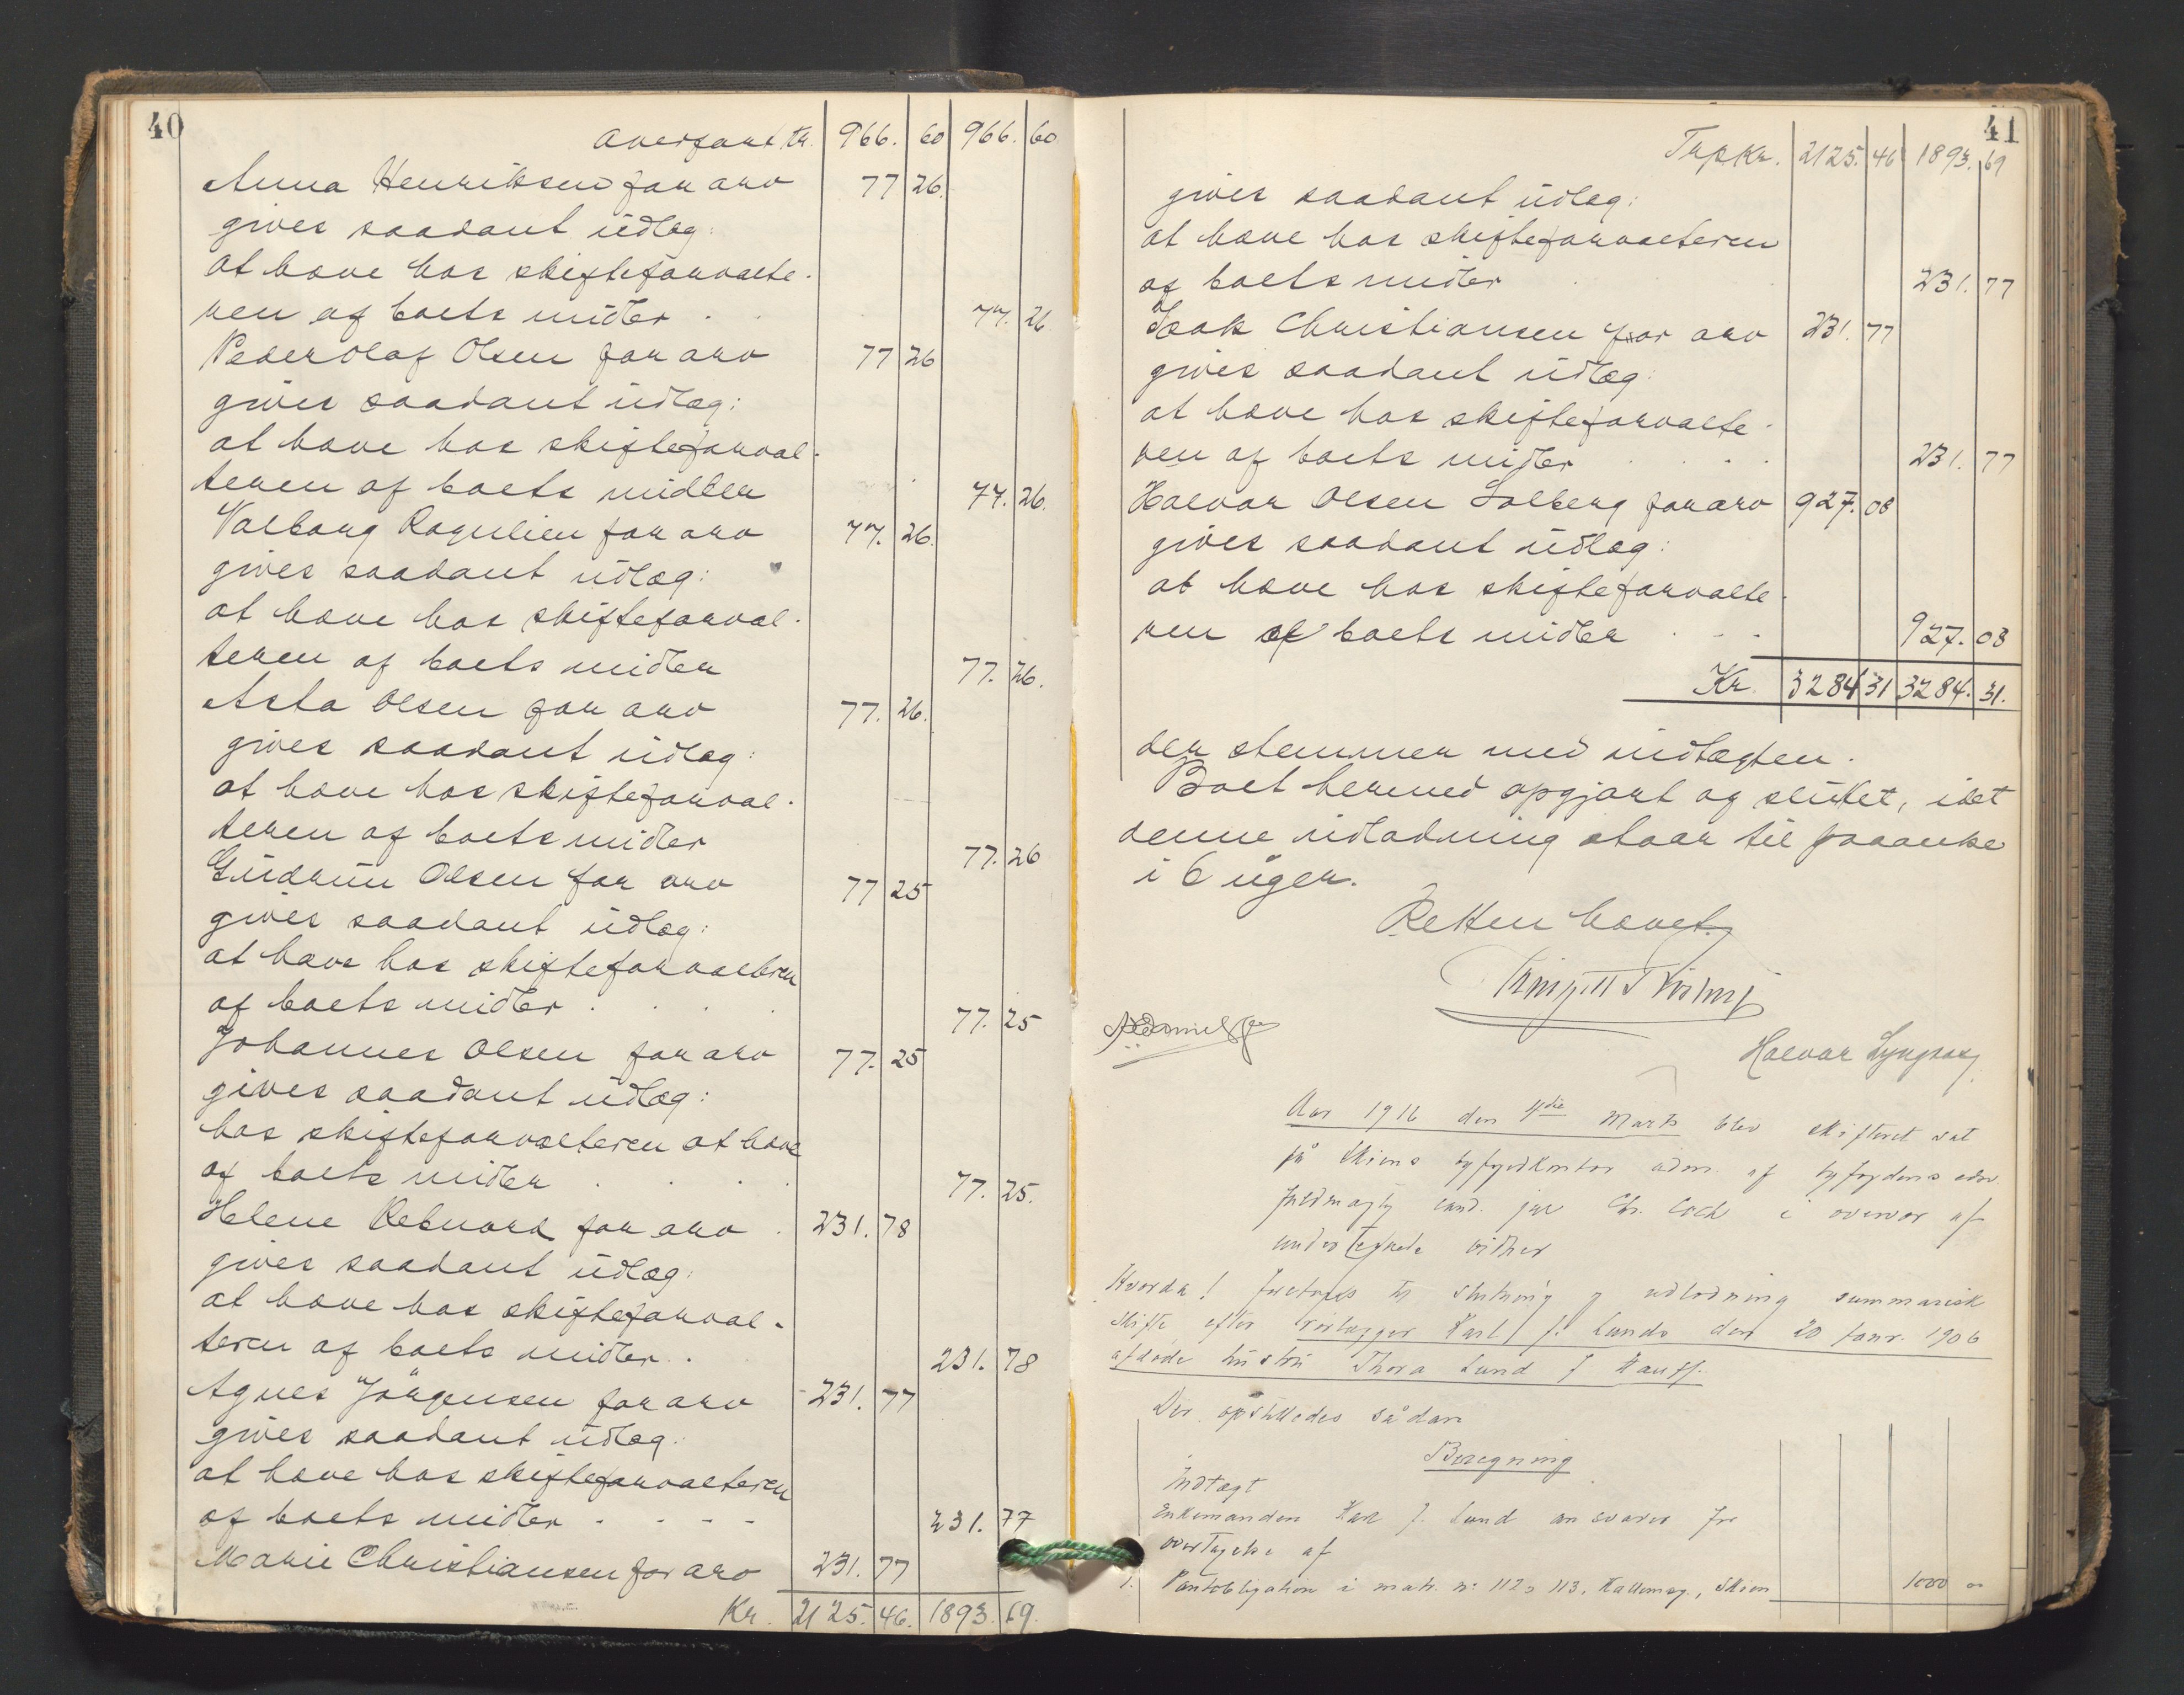 40
Overført kr. 966. 60 966. 60
Anna Henriksen for arv 77 26.
gives saadant udlæg:
at hæve hos skifteforvalte-
ren af boets midler . . 77. 26.
Peder Olaf Olsen for arv 77 26
gives saadant udlæg:
at hæve hos skifteforval-
teren af boets midler 77. 26.
Valborg for arv 77. 26.
gives saadant udlæg:
at hæve hos skifteforval-
teren af boets midler 77. 26.
Asta Olsen for arv 77. 26.
gives saadant udlæg:
at hæve hos skifteforval-
teren af boets midler 77. 26
Gudrun Olsen for arv 77 25
gives saadant udlæg:
at hæve hos skifteforvalteren
af boets midler . . . 77. 25
Johannes Olsen for arv 77. 25
gives saadant udlæg:
hos skifteforvalteren at hæve
af boets midler . . . 77. 25.
Helene for arv . 231. 78
gives saadant udlæg:
at hæve hos skifteforval-
teren af boets midler . 231. 78
Agnes Jörgensen for arv 231. 77
gives saadant udlæg:
at hæve hos skifteforvalteren
af boets midler - - - - 231. 77
Marie Christiansen for arv 231. 77
Kr. 2125. 46. 1893. 69.
41
Trspkr. 2125. 46 1893. 69
gives saadant udlæg:
at hæve hos skifteforvalteren
af boets midler 231. 77
Isak Christiansen for arv 231. 77
gives saadant udlæg:
at hæve hos skifteforvalte-
ren af boets midler . . . . 231. 77
Halvor Olsen Solberg for arv 927. 08
gives saadant udlæg:
at hæve hos skifteforvalte-
ren af boets midler . - - 927. 08
Kr. 3284 31 3284. 31.
der stemmer med indtægten.
Boet hermed opgjort og sluttet, idet
denne udlodning staar til paaanke
i 6 uger.
Retten hævet.
Halvor
Aar 1916 den 4die Marts blev skifteret sat
på Skiens byfogdkontor adm. af byfogdens edsv.
fuldmægtig cand. jur Chr. Coch i overvær af
undertegnede vidner
Hvorda! foretoges til slutning og udlodning summarisk
skifte efter Karl J. Lunds den 20 janr. 1906
afdøde hustru Thora Lund f.
Der opstilledes sådan
Beregning
Indtægt
Enkemanden Karl J. Lund ansvarer for
overtagelse af
1. Pantobligation i matr. n: 112 o 113, Skien 1000 00